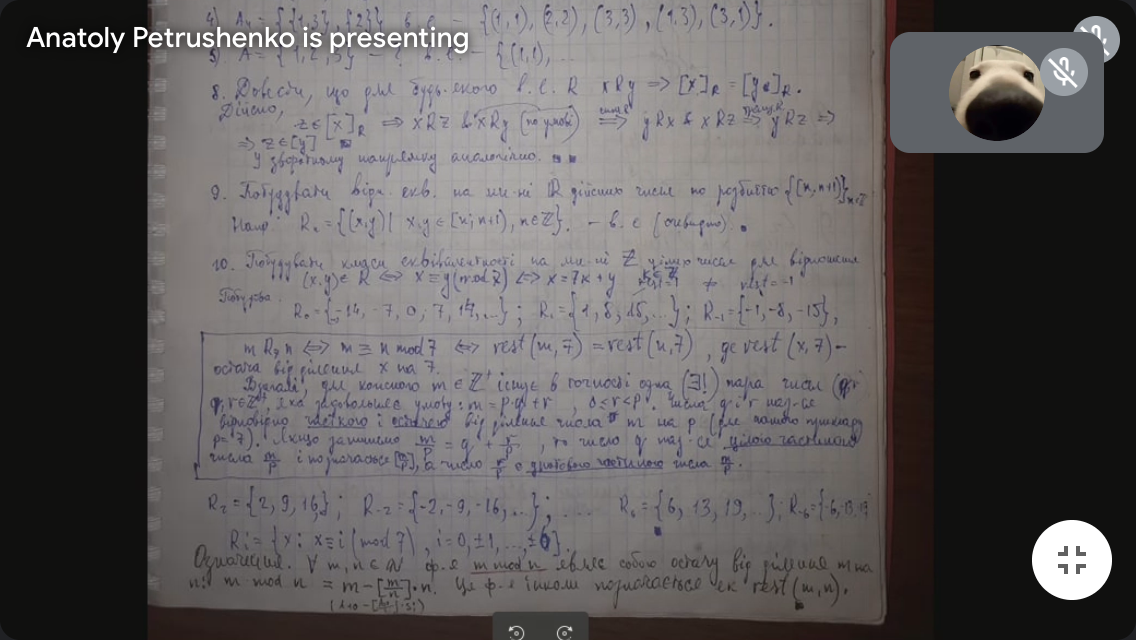 4) A₄ = {{1,3}, {2}} – {(1,1), (2,2), (3,3), (1,3), (3,1)}.
Anatoly Petrushenko is presenting
5) A = {1,2,3} – {(1,1), ...
8. Довести, що для будь-якого в.е. R xRy ⟹ [x]_R = [y]_R.
Дійсно,
z ∈ [x]_R ⟹ xRz & xRy (по умові) ⟹ yRx & xRz ⟹ yRz ⟹
⟹ z ∈ [y]
У зворотному напрямку аналогічно.
9. Побудувати відн. екв. на мн-ні ℝ дійсних чисел по розбиттю {[n, n+1)}_{n∈ℤ}
R = {(x,y) | x,y ∈ [n; n+1), n∈ℤ}. – в. е (очевидно).
10. Побудувати класи еквівалентності на мн-ні ℤ цілих чисел для відношення
(x,y) ∈ R ⟺ x ≡ y (mod 7) ⟺ x = 7k + y
Побудова.
R₀ = {-14, -7, 0, 7, 14, ...}; R₁ = {1, 8, 15, ...}; R₋₁ = {-1, -8, -15},
m R₇ n ⟺ m ≡ n mod 7 ⟺ rest(m,7) = rest(n,7), де rest(x,7) –
остача від ділення x на 7.
для кожного m ∈ ℤ існує в точності одна (∃!) пара чисел (q,r
яка задовольняє умову: m = p·q + r, 0 ≤ r < p. Числа q і r наз-ся
відповідно часткою і остачею від ділення числа m на p (для нашого прикладу
p = 7). Якщо запишемо m/p = q + r/p, то число q наз-ся цілою частиною
числа m/p і позначається [m/p], а число r/p є дробовою частиною числа m/p.
R₂ = {2, 9, 16}; R₋₂ = {-2, -9, -16, ...}; .... R₆ = {6, 13, 19, ...}; R₋₆ = {-6, -13
Rᵢ = {x : x ≡ i (mod 7), i = 0, ±1, ..., ±6}.
Означення. ∀ m, n ∈ ф-я m mod n являє собою остачу від ділення m на
n: m mod n = m – [m/n]·n. Ця ф-я інколи позначається як rest(m,n).